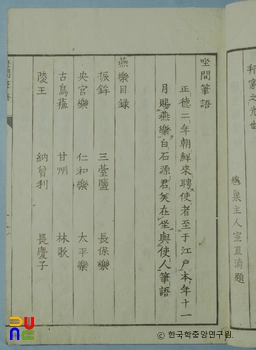 坐間筆語
正德二年朝鮮來聘使者至于江戶本年十一
月賜燕樂白石源君美在坐與使人筆語
燕樂目錄
振鉾 三臺鹽 長保樂
央宮樂 仁和樂 太平樂
古鳥蘇 甘州 林歌
陵王 納曾利 長慶子
泉主人室直清題
ⓒ 한국학중앙연구원